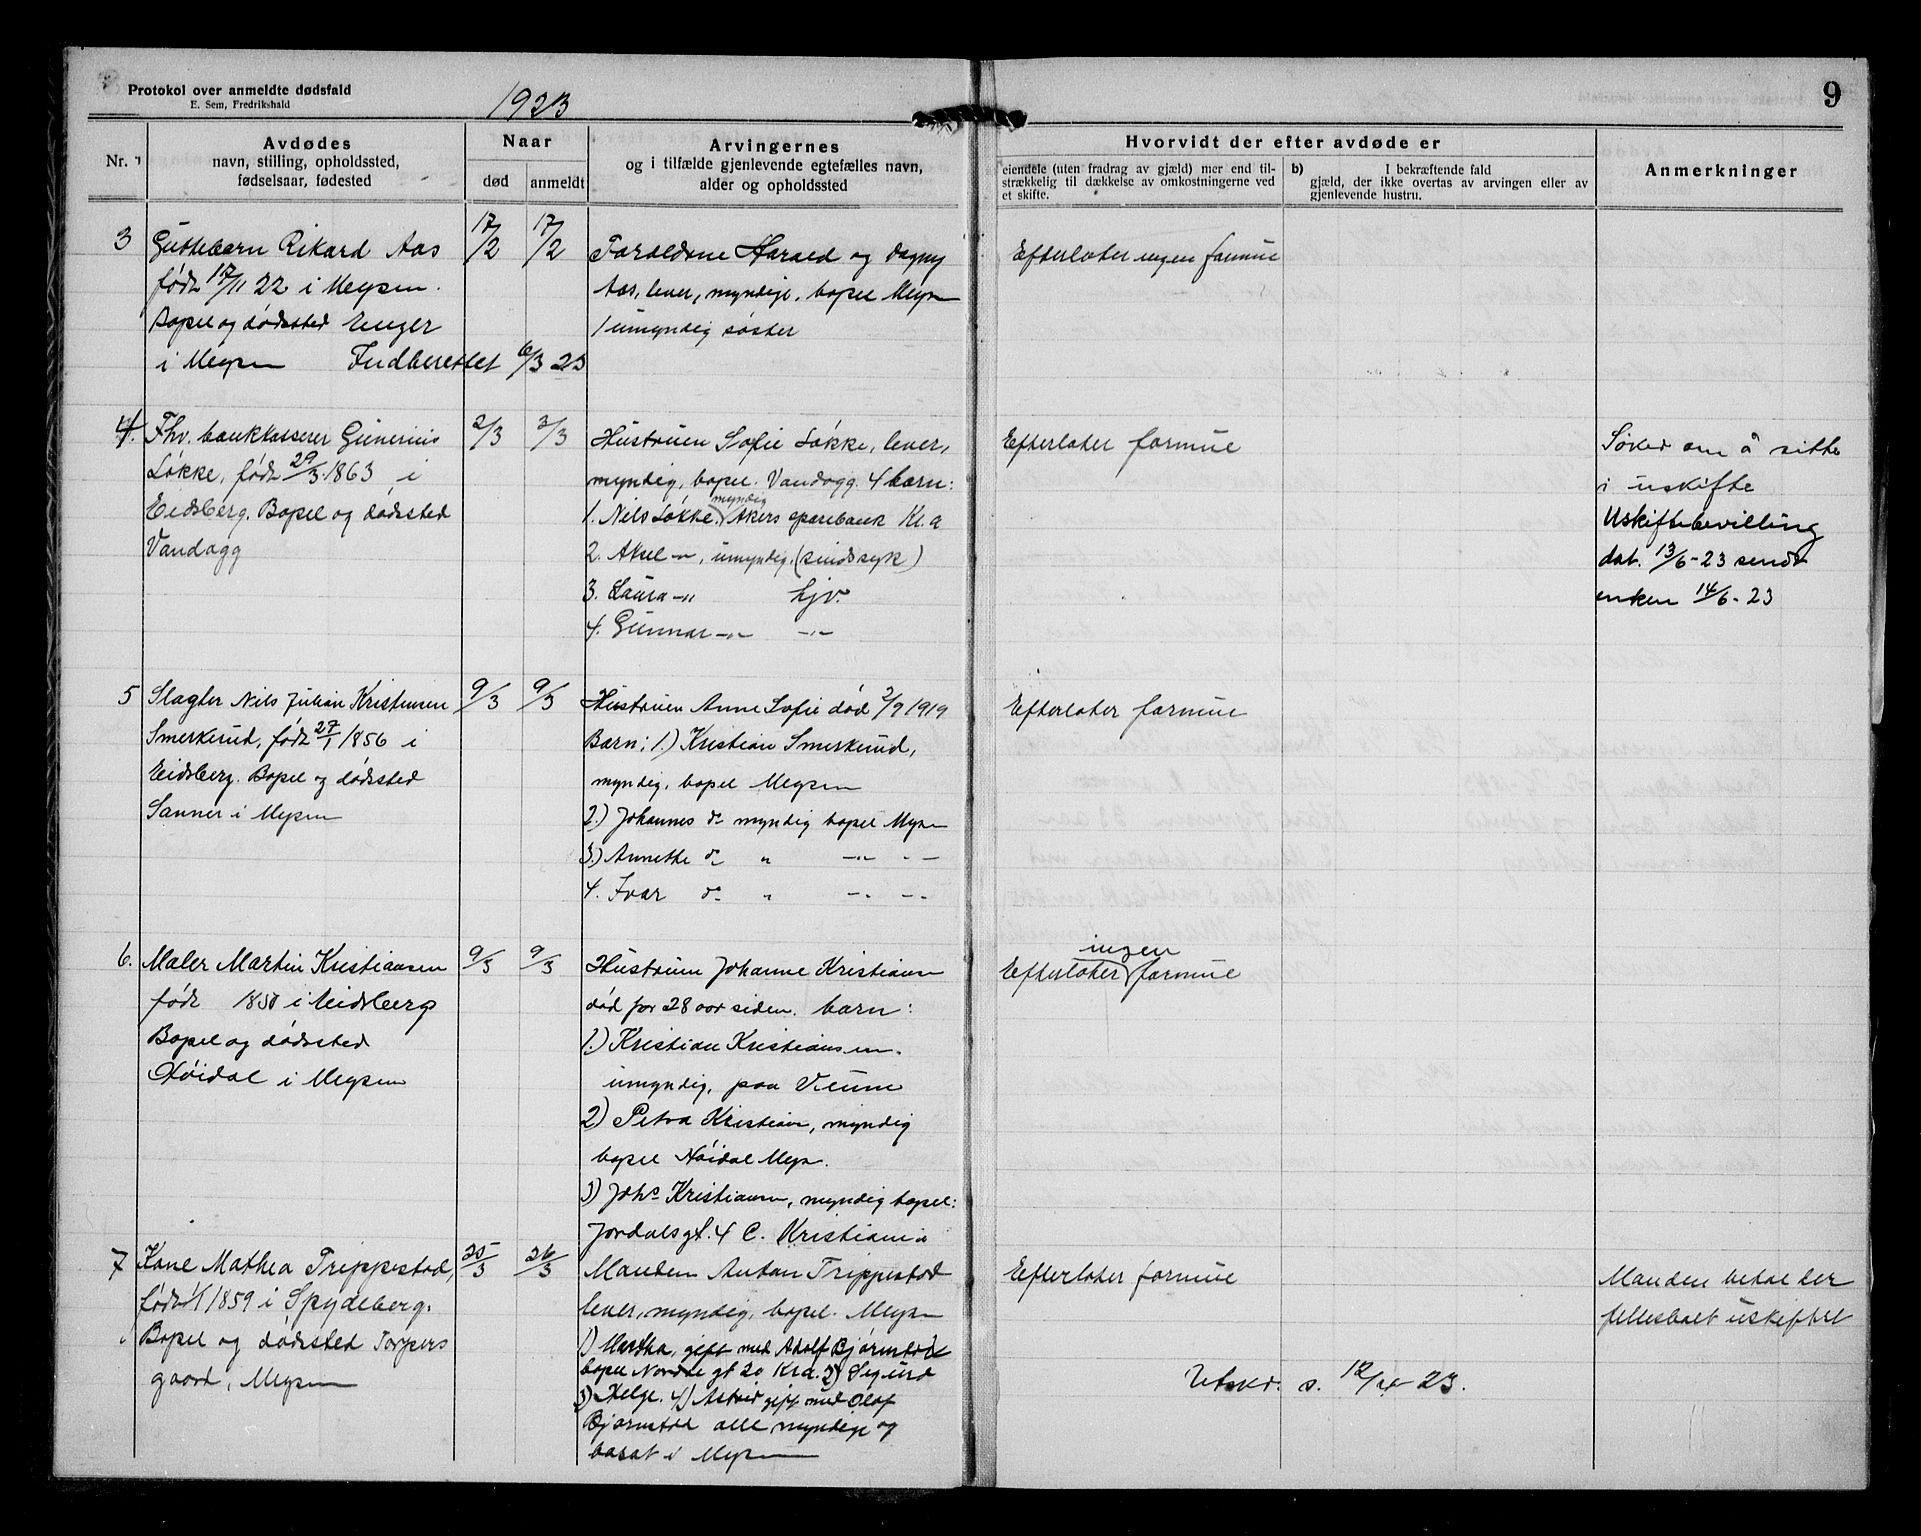 Protokol over anmeldte dødsfald
E. Sem, Fredrikshald
1923
9
Nr.
Avdødes
navn, stilling, opholdssted,
fødselsaar, fødested
Naar
død
anmeldt
Arvingernes
og i tilfælde gjenlevende egtefælles navn,
alder og opholdssted
Hvorvidt der efter avdøde er
eiendele (uten fradrag av gjæld) mer end til-
strækkelig til dækkelse av omkostningerne ved
et skifte.
b) I bekræftende fald
gjæld, der ikke overtas av arvingen eller av
gjenlevende hustru.
Anmerkninger
3
Guttebarn Rikard Aas
født 17/11 22 i Mysen.
Bopel og dødssted Enger
i Mysen Indberettet 6/3 23
17/2
17/2
Foreldrene Harald og Dagny
Aas, lever, myndige, bopel Mysen
1 umyndig søster
Efterlater ingen formue
4.
Fhv. bankkasserer Gunerius
Løkke, født 29/3 1863 i
Eidsberg. Bopel og dødssted
Vandogg
2/3
3/3
Hustruen Sofie Løkke, lever,
myndig, bopel. Vandogg. 4 barn:
1. Nils Løkke, myndig Akers sparebank Kr.a
2. Aksel -"-, umyndig, (sindssyk)
3. Laura -"- hjv.
4. Gunnar -"- -"-
Efterlater formue
Søker om å sitte
i uskifte
Uskiftebevilling
dat. 13/6-23 sendt
enken 14/6-23
5
Slagter Nils Julian Kristensen
Smerkerud, født 27/1 1856 i
Eidsberg. Bopel og dødssted
Sanner i Mysen
9/3
9/3
Hustruen Anne Sofie død 2/9 1919
Barn: 1.) Kristian Smerkerud,
myndig, bopel Mysen
2.) Johannes do myndig bopel Mysen
3.) Annette do " -"- -"-
4. Ivar do " -"- -"-
Efterlater formue
6.
Maler Martin Kristiansen
født 1850 i Eidsberg
Bopel og dødssted
Høidal i Mysen
9/3
9/3
Hustruen Johanne Kristiansen
død for 28 aar siden. barn:
1.) Kristian Kristiansen.
umyndig, paa Veum
2) Petra Kristians, myndig
bopel Høidal Mysen.
3) Johs Kristiansen, myndig bopel:
Jordalsgt. 4 C. Kristiania
Efterlater ingen formue
7
Kone Mathea Trippestad,
født 1859 i Spydeberg.
Bopel og dødssted Torpers
gaard, Mysen
25/3
26/3
Manden Anton Trippestad
lever, myndig, bopel. Mysen
1) Martha, gift med Adolf Bjørnstad
bopel Nordre gt 20 Kra. 2) Sigurd
3) Helge. 4) Astrid gift med Olaf
Bjørnstad alle myndige og
bosat i Mysen
Efterlater formue
Utskr. s. 12/4 23.
Manden beholder
fellesboet uskiftet